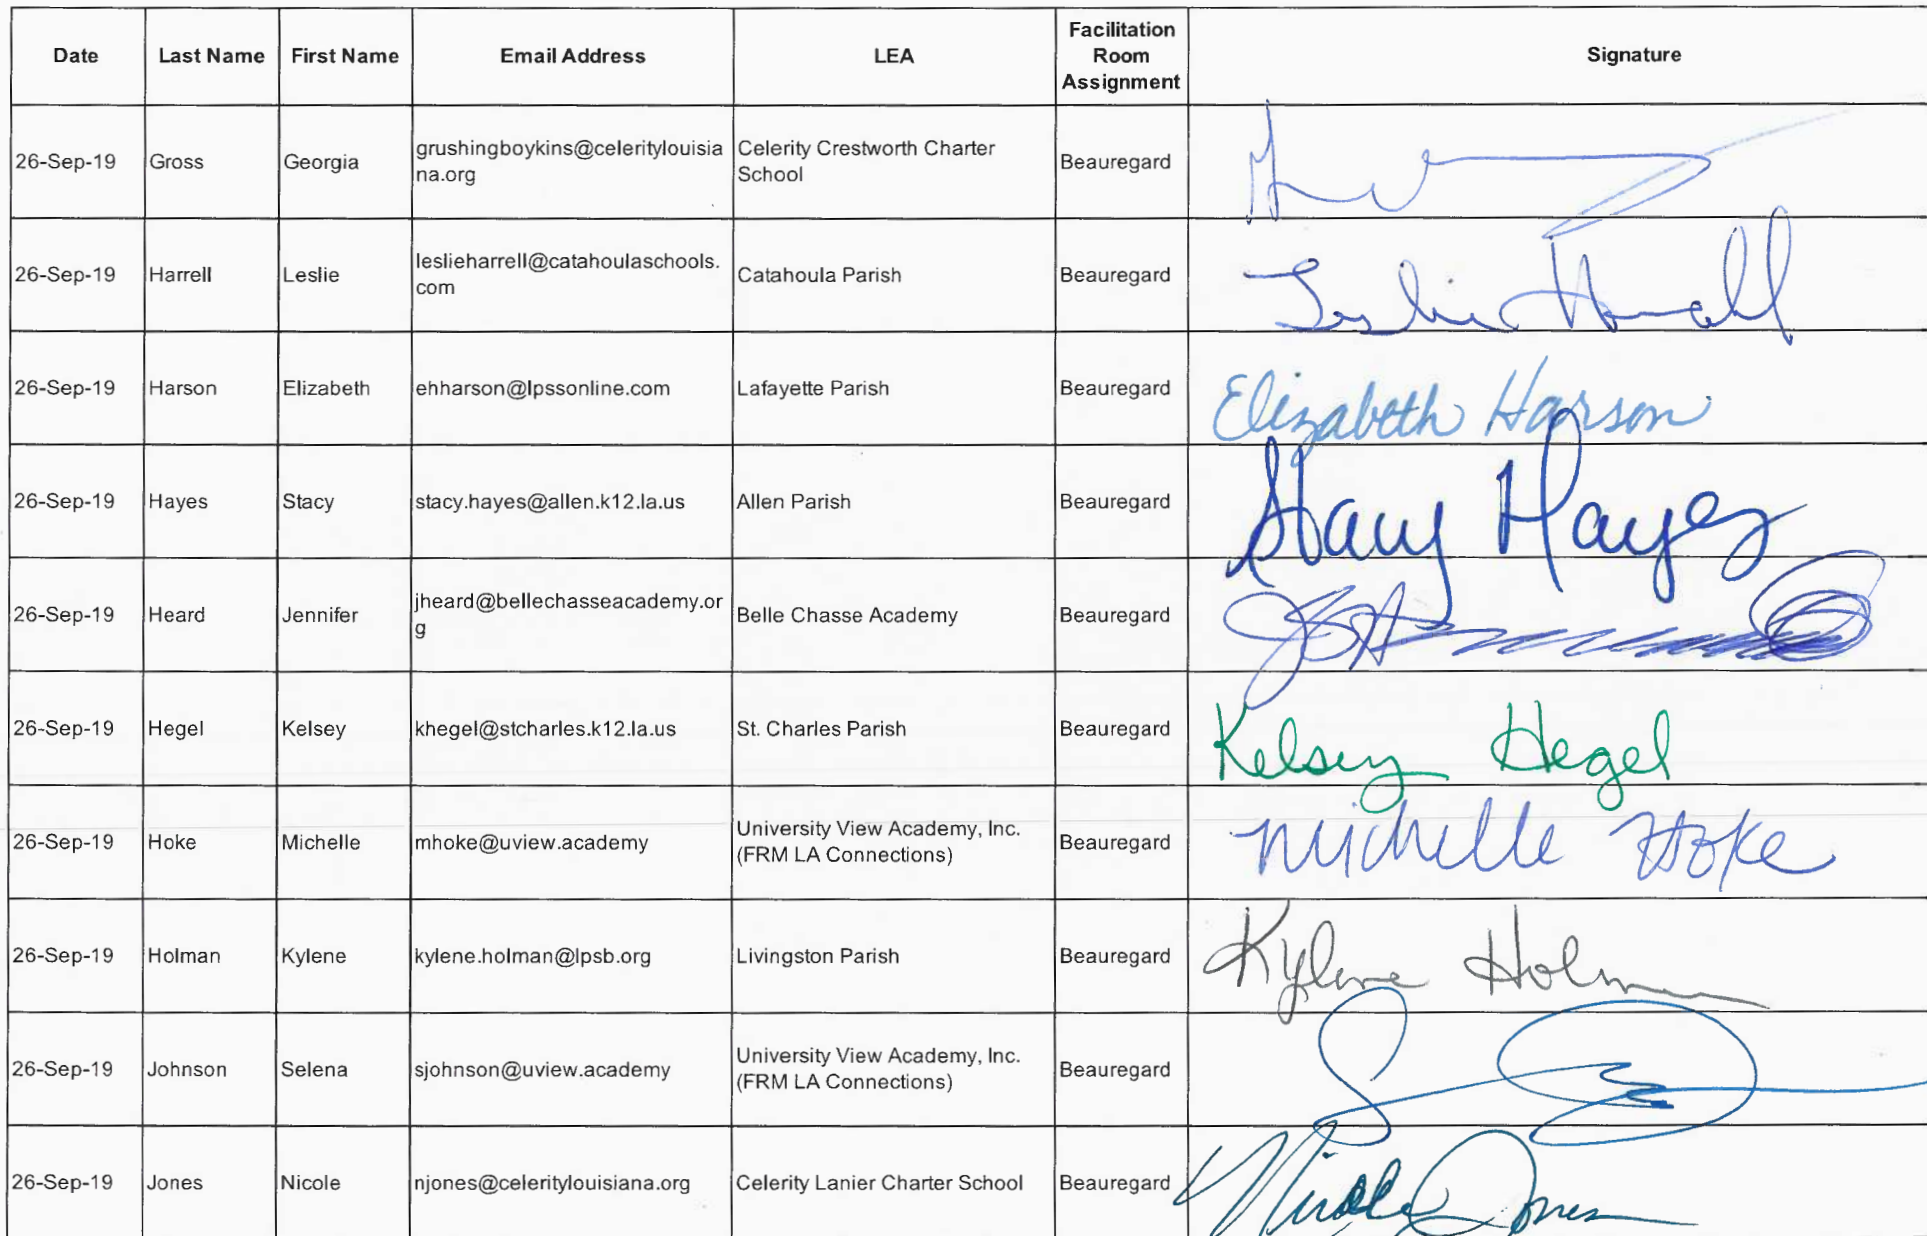 Date Last Name First Name Email Address LEA Facilitation Room Assignment Signature
26-Sep-19 Gross Georgia grushingboykins@celeritylouisia
na.org Celerity Crestworth Charter
School Beauregard
26-Sep-19 Harrell Leslie leslieharrell@catahoulaschools.
com Catahoula Parish Beauregard Leslie Harrell
26-Sep-19 Harson Elizabeth ehharson@lpssonline.com Lafayette Parish Beauregard Elizabeth Harson
26-Sep-19 Hayes Stacy stacy.hayes@allen.k12.la.us Allen Parish Beauregard Stacy Hayes
26-Sep-19 Heard Jennifer jheard@bellechasseacademy.or
g Belle Chasse Academy Beauregard
26-Sep-19 Hegel Kelsey khegel@stcharles.k12.la.us St. Charles Parish Beauregard Kelsey Hegel
26-Sep-19 Hoke Michelle mhoke@uview.academy University View Academy, Inc.
(FRM LA Connections) Beauregard Michelle Hoke
26-Sep-19 Holman Kylene kylene.holman@lpsb.org Livingston Parish Beauregard Kylene Holman
26-Sep-19 Johnson Selena sjohnson@uview.academy University View Academy, Inc.
(FRM LA Connections) Beauregard
26-Sep-19 Jones Nicole njones@celeritylouisiana.org Celerity Lanier Charter School Beauregard Nicole Jones